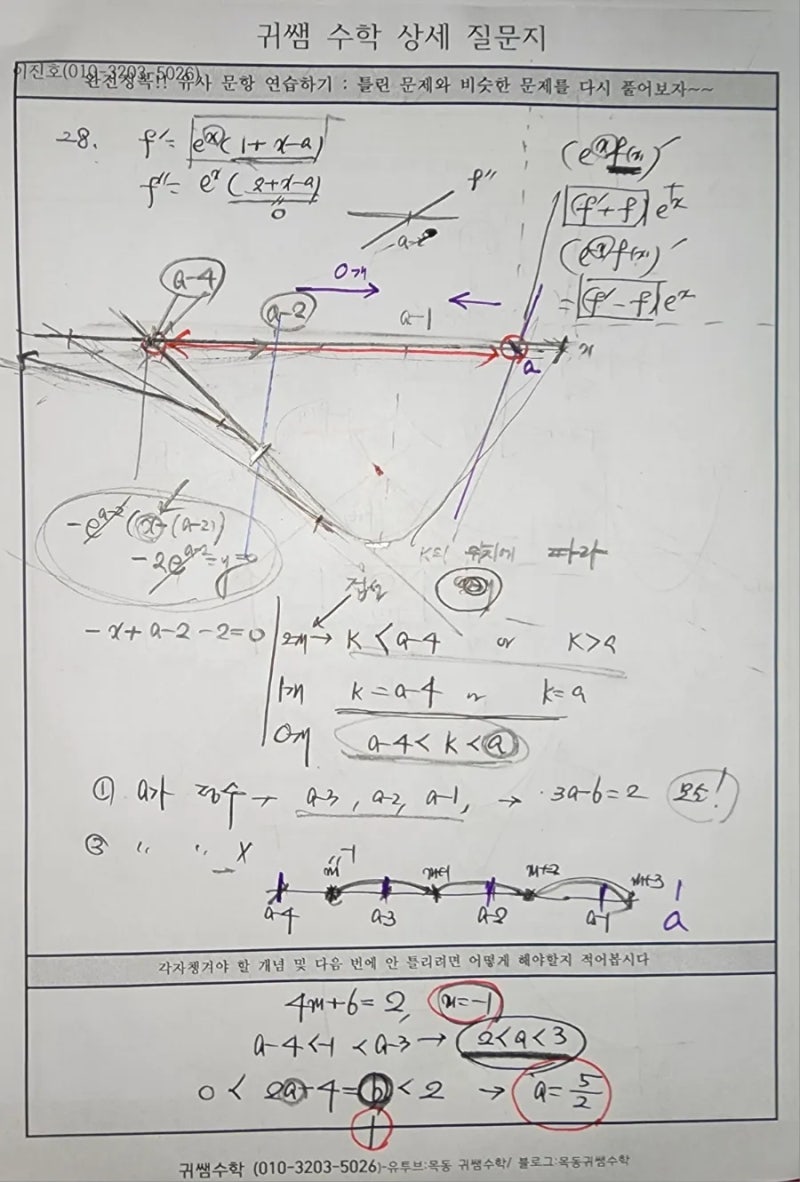 귀쌤 수학 상세 질문지
이진호(010-3203-5026)
완전정복!! 유사 문항 연습하기 : 틀린 문제와 비슷한 문제를 다시 풀어보자~~
28. f′= eˣ(1+x-a)
f″= eˣ(2+x-a)
0
f″
a-2
(eˣf(x))′
(f′+f)eˣ
(eˣf(x))′
=(f′-f)eˣ
a-4
0개
a-2
a-1
x
a
-eᵃ⁻²(x-(a-2))
-2eᵃ⁻²=y=0
K의 위치에 따라
접선
-x+a-2-2=0
2개→ K<a-4 or K>a
1개 K=a-4 or K=a
0개 a-4<K<a
① a가 정수→ a-3, a-2, a-1, → 3a-6=2 모순!
② 〃 〃 X
m -1 m+1 m+2 m+3
a-4 a-3 a-2 a-1 a
각자챙겨야 할 개념 및 다음 번에 안 틀리려면 어떻게 해야할지 적어봅시다
4m+6=2, m=-1
a-4<-1<a-3→ 2<a<3
0< 2a-4=b<2 → a=5/2
1
귀쌤수학 (010-3203-5026)-유투브:목동 귀쌤수학/ 블로그:목동귀쌤수학